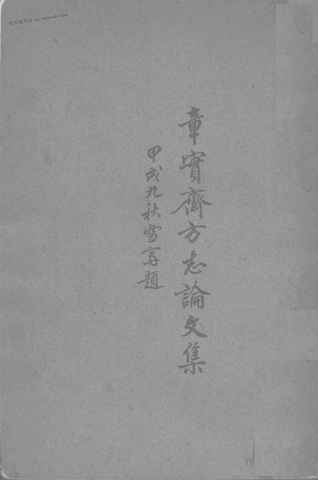 章實齋方志論文集
甲戌九秋雪⁠題